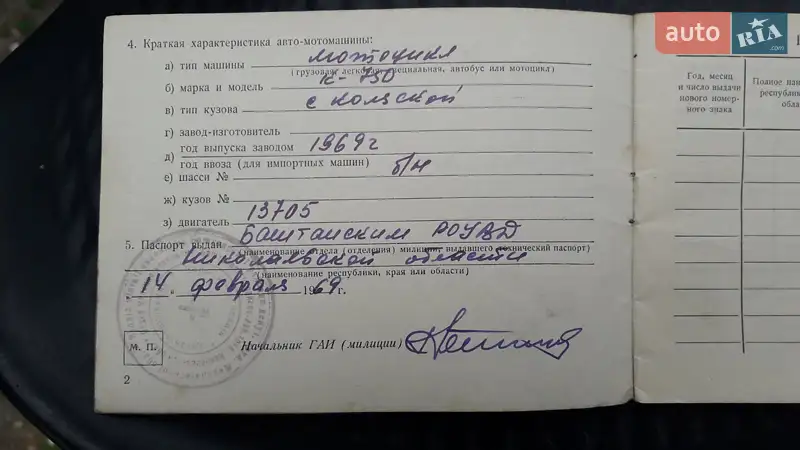 auto RIA .com
4. Краткая характеристика авто-мотомашины:
а) тип машины мотоцикл
(грузовая легковая, специальная, автобус или мотоцикл)
б) марка и модель К-750
в) тип кузова с коляской
г) завод-изготовитель
д) год выпуска заводом 1969г
год ввоза (для импортных машин)
е) шасси № б/н
ж) кузов №
з) двигатель 13705
5. Паспорт выдан Баштанским РОУВД
(наименование отдела (отделения) милиции, выдавшего технический паспорт)
Николаевской области
(наименование республики, края или области)
"14" февраля 1969г.
М. П.
Начальник ГАИ (милиции)
2
Год, месяц
и число выдачи
нового номер-
ного знака